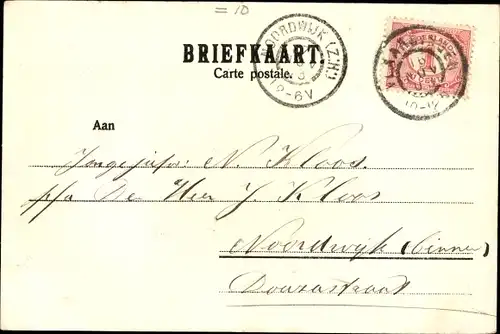 = 10
BRIEFKAART.
Carte postale.
NOORDWIJK (Z:H:)
12-6V
VLAARDINGEN
Aan
Jongejufr: N. Kloos.
p/a De Heer J. Kloos
Noordwijk (binnen)
Douzastraat